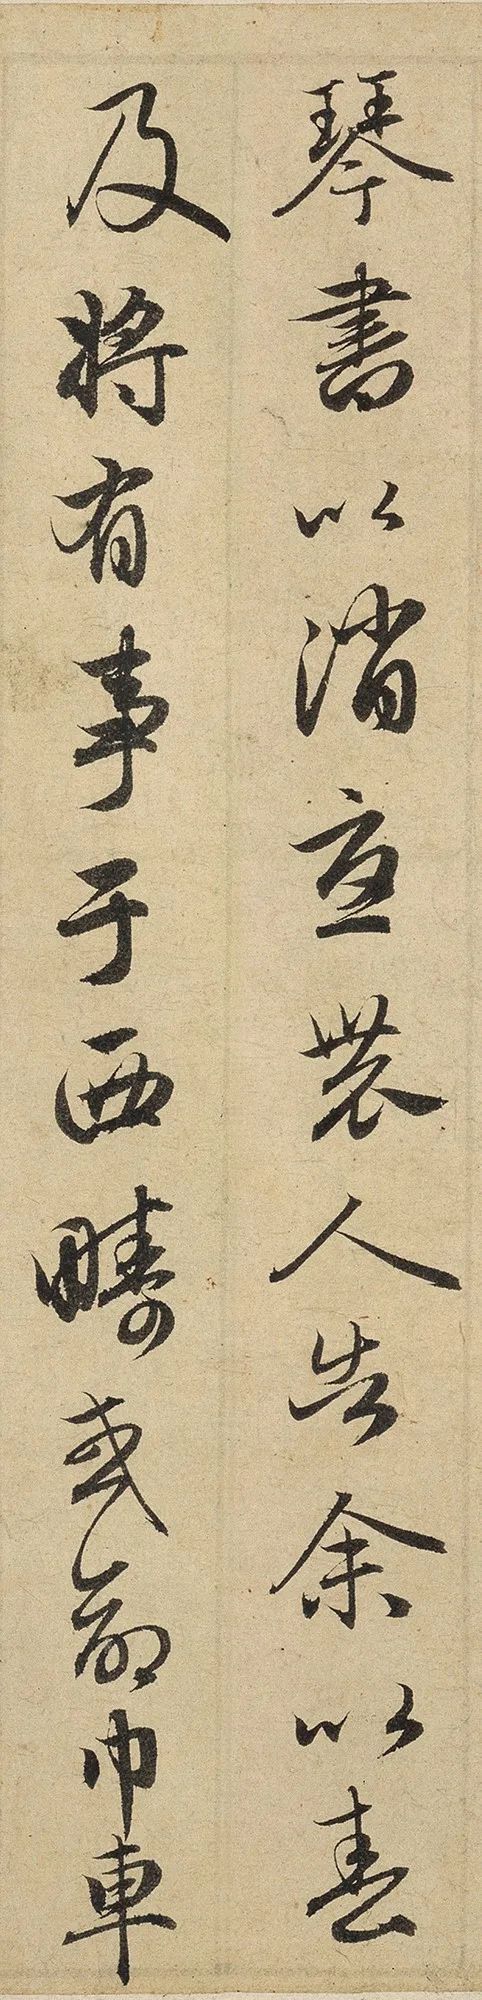 琴書以消憂農人告余以春
及將有事于西疇或命巾車